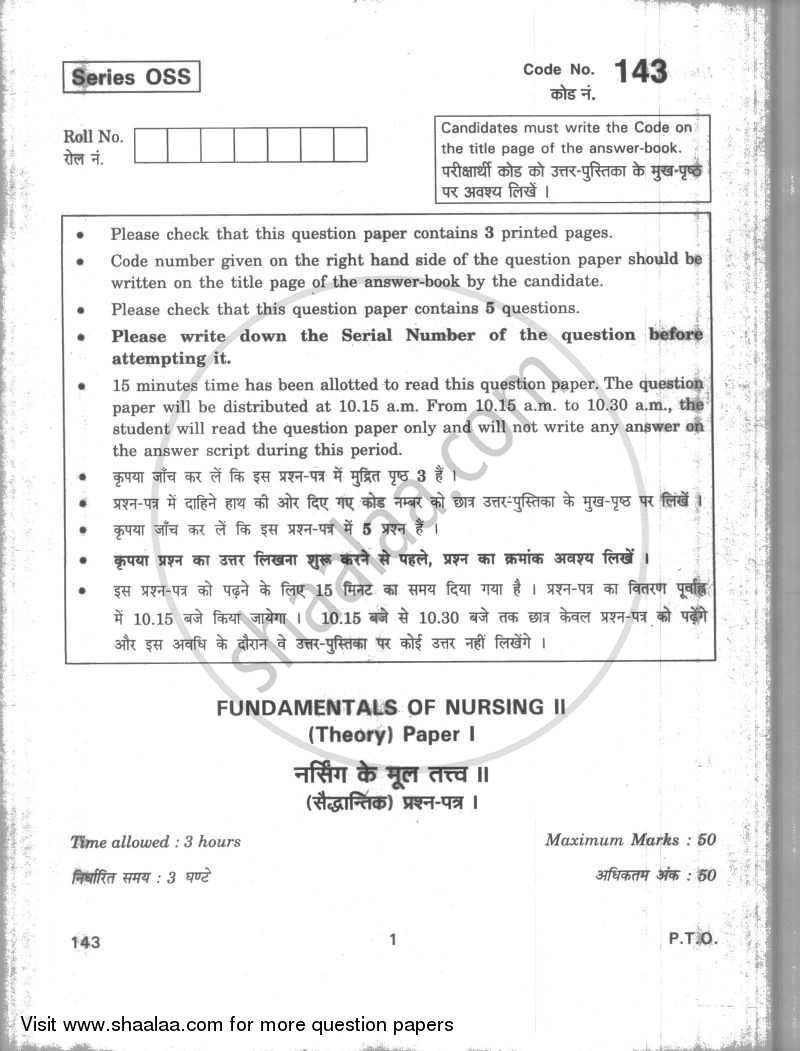 Series OSS
Code No. 143
कोड नं.
Roll No.
रोल नं.
Candidates must write the Code on
the title page of the answer-book.
परीक्षार्थी कोड को उत्तर-पुस्तिका के मुख-पृष्ठ
पर अवश्य लिखें ।
• Please check that this question paper contains 3 printed pages.
• Code number given on the right hand side of the question paper should be
written on the title page of the answer-book by the candidate.
• Please check that this question paper contains 5 questions.
• Please write down the Serial Number of the question before
attempting it.
• 15 minutes time has been allotted to read this question paper. The question
paper will be distributed at 10.15 a.m. From 10.15 a.m. to 10.30 a.m., the
student will read the question paper only and will not write any answer on
the answer script during this period.
• कृपया जाँच कर लें कि इस प्रश्न-पत्र में मुद्रित पृष्ठ 3 हैं ।
• प्रश्न-पत्र में दाहिने हाथ की ओर दिए गए कोड नम्बर को छात्र उत्तर-पुस्तिका के मुख-पृष्ठ पर लिखें ।
• कृपया जाँच कर लें कि इस प्रश्न-पत्र में 5 प्रश्न हैं ।
• कृपया प्रश्न का उत्तर लिखना शुरू करने से पहले, प्रश्न का क्रमांक अवश्य लिखें ।
• इस प्रश्न-पत्र को पढ़ने के लिए 15 मिनट का समय दिया गया है । प्रश्न-पत्र का वितरण पूर्वाह्न
में 10.15 बजे किया जायेगा । 10.15 बजे से 10.30 बजे तक छात्र केवल प्रश्न-पत्र को पढ़ेंगे
और इस अवधि के दौरान वे उत्तर-पुस्तिका पर कोई उत्तर नहीं लिखेंगे ।
shaalaa.com
FUNDAMENTALS OF NURSING II
(Theory) Paper I
नर्सिंग के मूल तत्त्व II
(सैद्धान्तिक) प्रश्न-पत्र I
Time allowed : 3 hours
Maximum Marks : 50
निर्धारित समय : 3 घण्टे
अधिकतम अंक : 50
143
1
P.T.O.
Visit www.shaalaa.com for more question papers